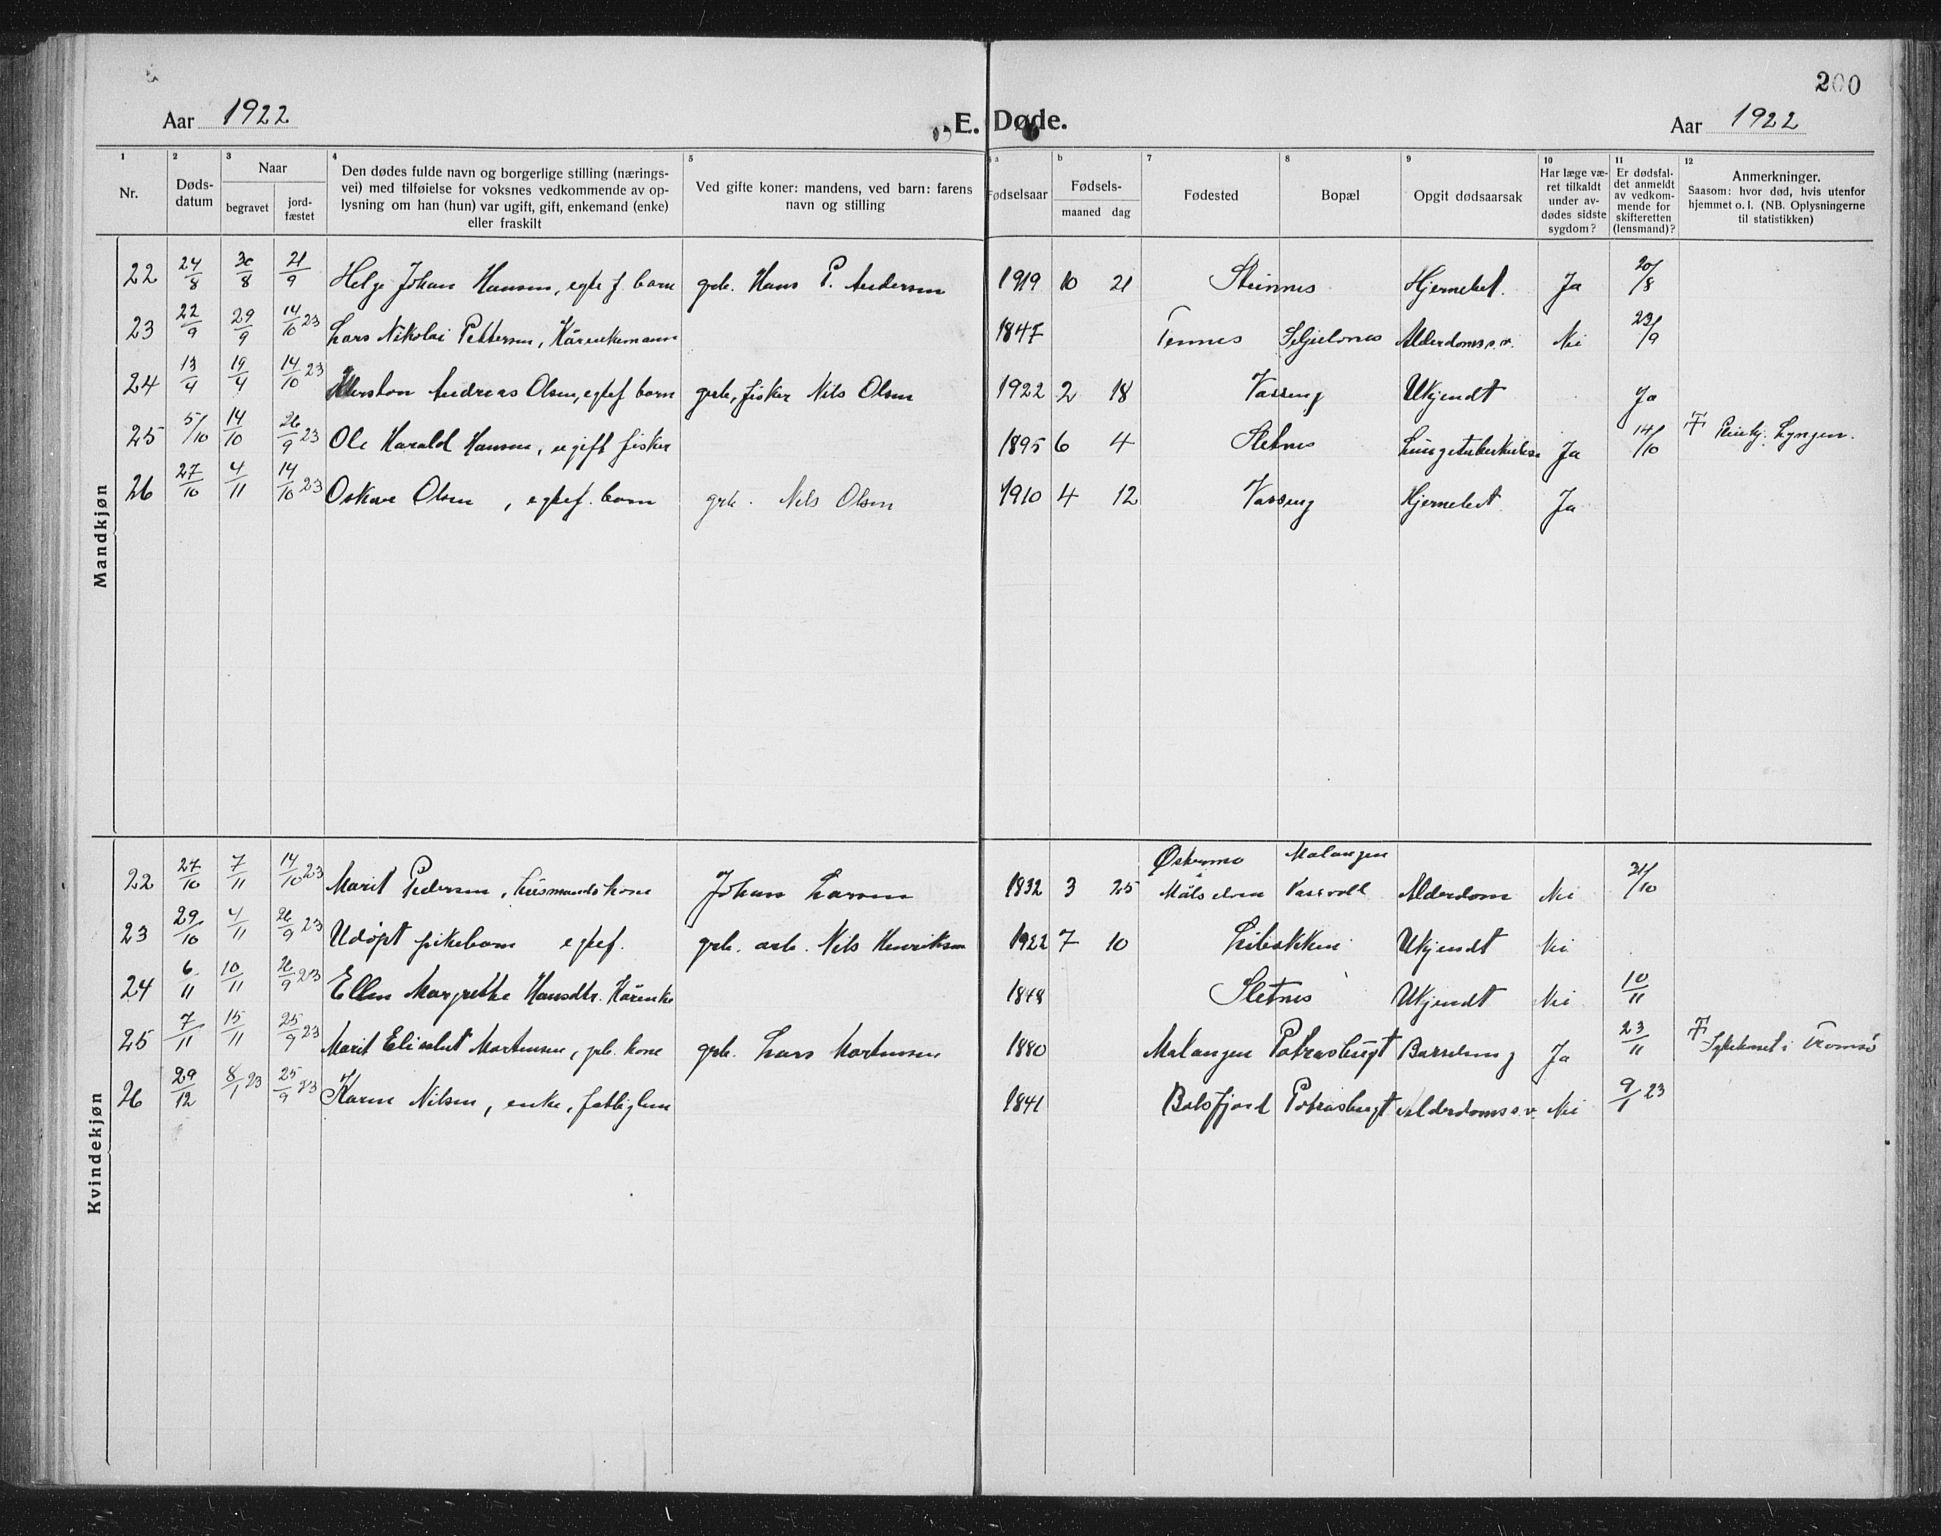 200
Aar 1922 E. Døde. Aar 1922
1 2 3 4 5 6a b 7 8 9 10 11 12
Nr. Døds-datum Naar begravet jordfæstet Den dødes fulde navn og borgerlige stilling (næringsvei) med tilføielse for voksnes vedkommende av oplysning om han (hun) var ugift, gift, enkemand (enke) eller fraskilt Ved gifte koner: mandens, ved barn: farens navn og stilling Fødselsaar Fødsels- maaned dag Fødested Bopæl Opgit dødsaarsak Har læge været tilkaldt under avdødes sidste sygdom? Er dødsfaldet anmeldt av vedkommende for skifteretten (lensmand)? Anmerkninger. Saasom: hvor død, hvis utenfor hjemmet o. l. (NB. Oplysningerne til statistikken)
Mandkjøn
22 24/8 30/8 21/9 Helge Johan Hansen, egte f. barn grb. Hans P. Andersen 1919 10 21 Steinnes Hjernebet. Ja 20/8
23 22/9 29/9 14/10 23 Lars Nikolai Pettersen, Kårenkemann 1847 Tennes Alderdomss.v. Nei 23/9
24 13/9 19/9 14/10 23 Andreas Olsen, egtef barn grb, fisker Nils Olsen 1922 2 18 Vasseng Ukjendt Ja
25 5/10 14/10 26/9 23 Ole Harald Hansen, ugift fisker 1895 6 4 Sletnes Lungetuberkulose Ja 14/10 Lyngen.
26 27/10 4/11 14/10 23 Oskar Olsen, egtef. barn grb. Nils Olsen 1910 4 12 Vasseng Hjernebet Ja
Kvindekjøn
22 27/10 7/11 14/10 23 Marit Pedersen, husmandskone Johan Larsen 1832 3 25 Målselven Malangen Alderdom Nei 31/10
23 29/10 4/11 26/9 23 Udøpt pikebarn egtef. grb. arb. Nils Henriksen 1922 7 10 Ukjendt Nei
24 6/11 10/11 26/9 23 Ellen Margrethe Hansdtr. Kårenke 1848 Sletnes Ukjendt Nei 10/11
25 7/11 15/11 25/9 23 Marit Elisabet Mortensen, grb. kone grb. Lars Mortensen 1880 Malangen Potrasbugt Barselseng Ja 23/11 Sykehuset i Tromsø
26 29/12 8/1 23 25/9 23 Karen Nilsen, enke, fattiglem 1841 Balsfjord Potrasbugt Alderdomss.v. Nei 9/1 23